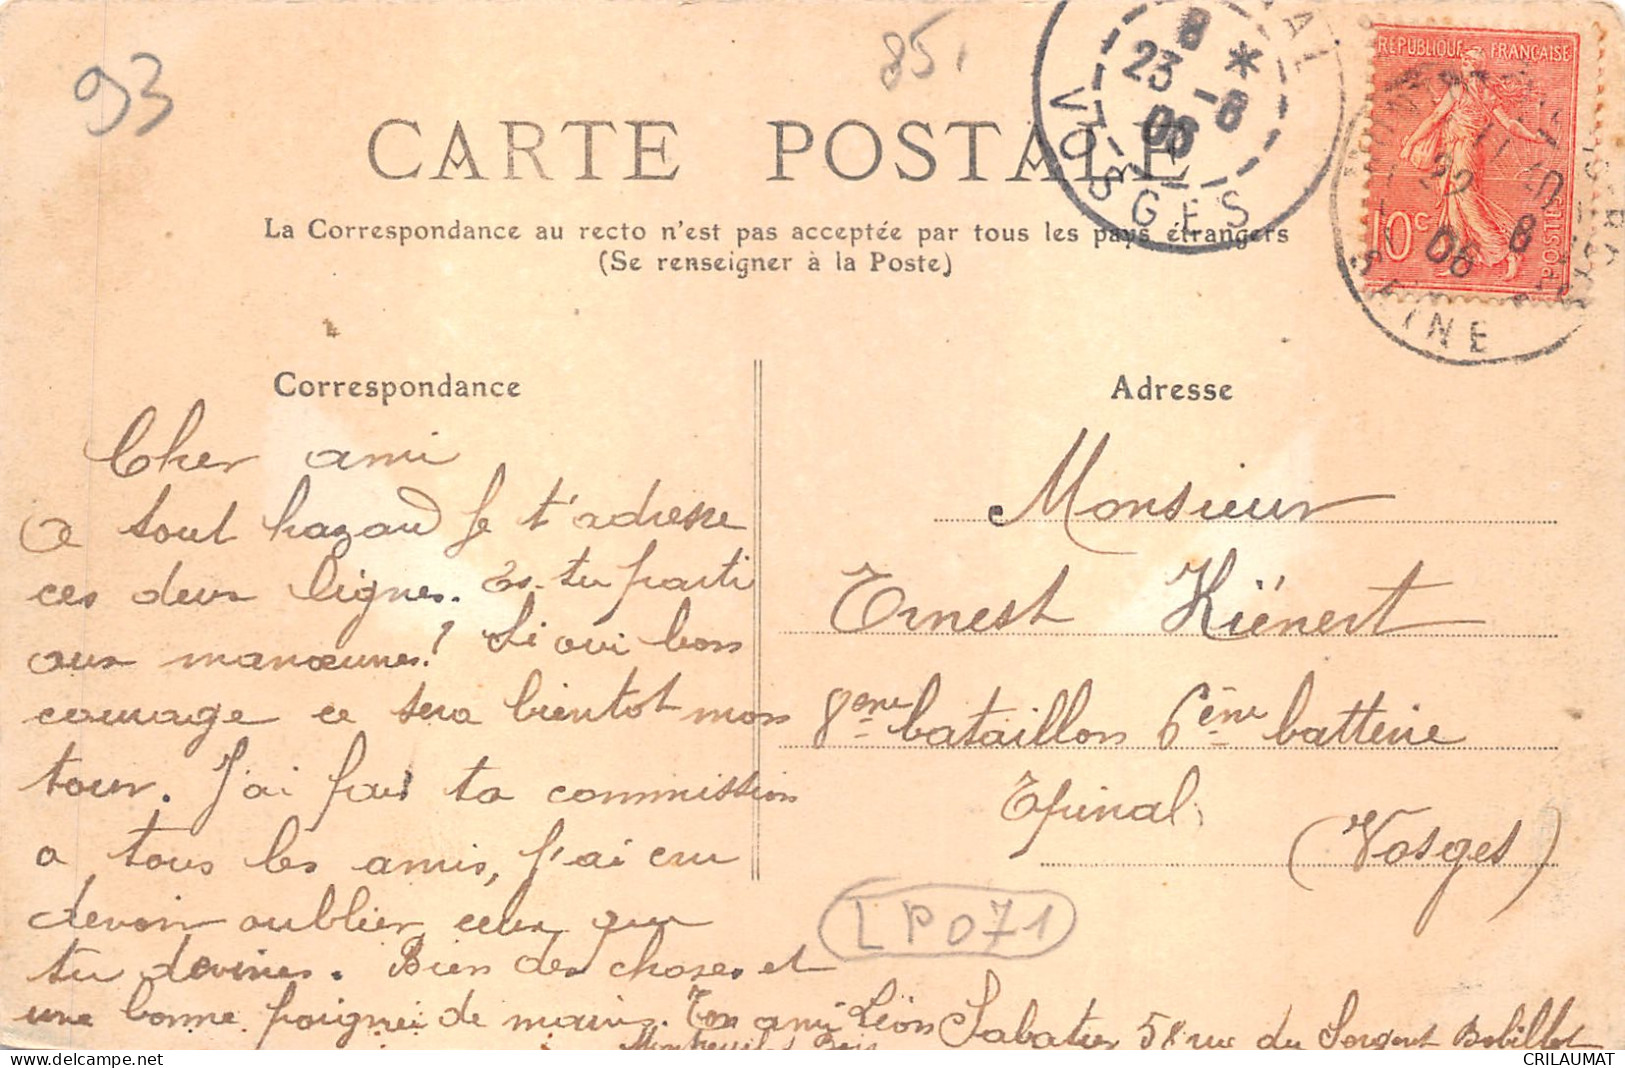 93
85
CARTE POSTALE
La Correspondance au recto n'est pas acceptée par tous les pays étrangers
(Se renseigner à la Poste)
8 *
23 -8
06
VOSGES
RÉPUBLIQUE FRANÇAISE
10c
POSTES
22
06
SEINE
Correspondance
Cher ami
A tout hazard Je t'adresse
ces deux lignes. Es-tu parti
aux manœuvres? Si oui bon
courage ce sera bientot mon
tour. J'ai fait ta commission
a tous les amis, J'ai cru
devoir oublier celui que
tu devines. Bien des choses et
une bonne poignée de mains. Ton ami Léon Sabatier 58 rue du Sergent Bobillot
Montreuil s/ Bois
Adresse
Monsieur
Ernest Kiénert
8eme bataillon 6ème batterie
Epinal
(Vosges)
LP071
© delcampe.net
CRILAUMAT